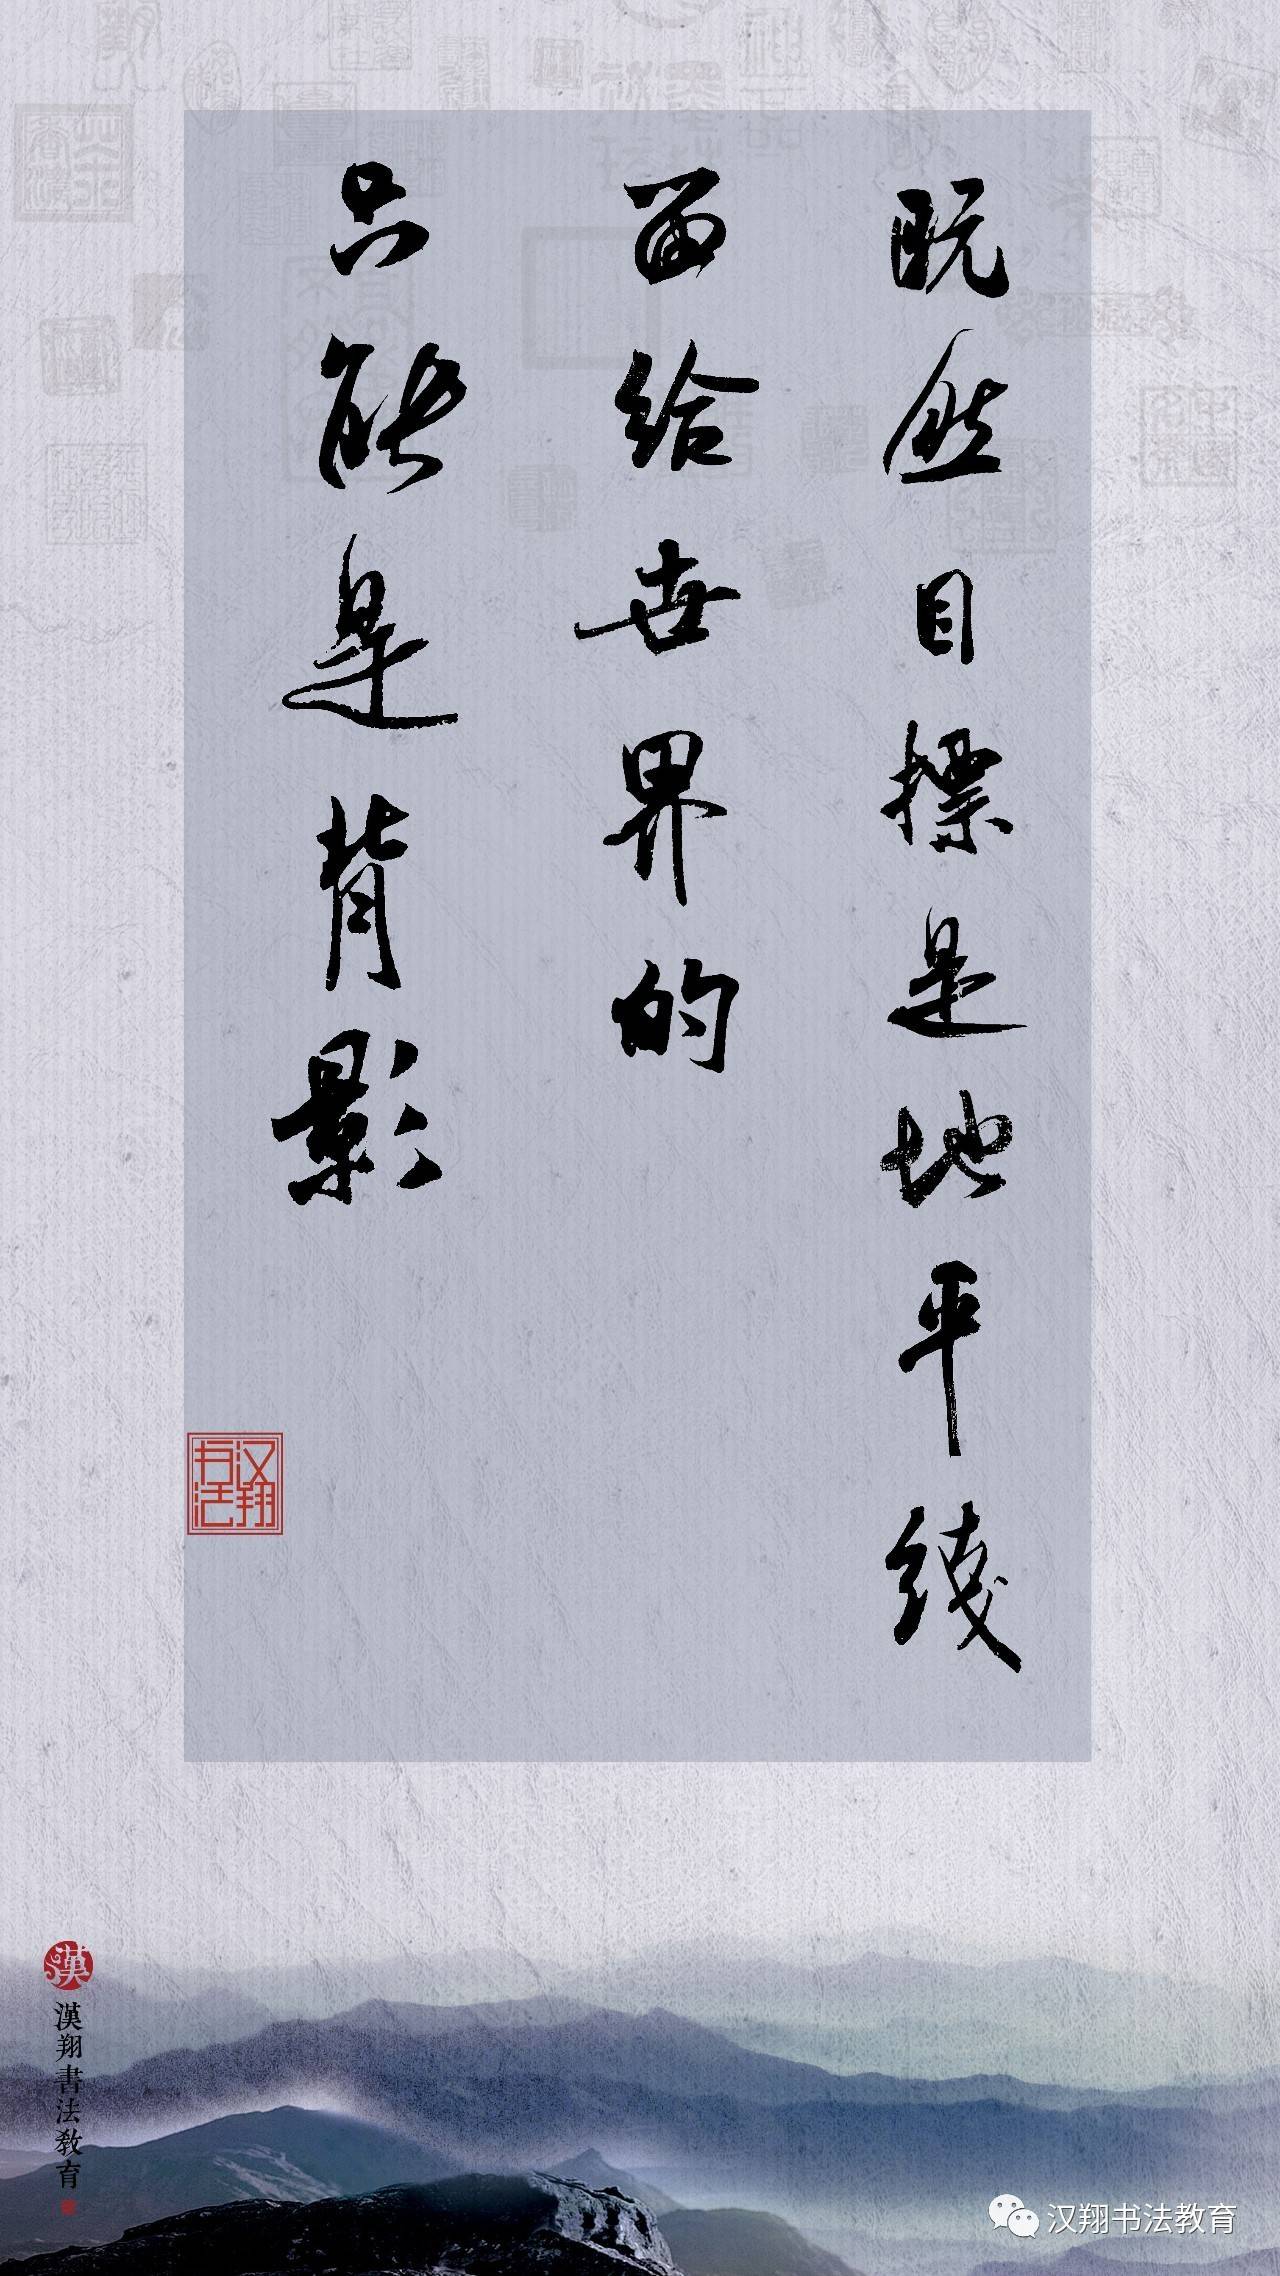 既然目标是地平线
留给世界的
只能是背影
汉翔书法
漢
漢翔書法教育
汉翔书法教育